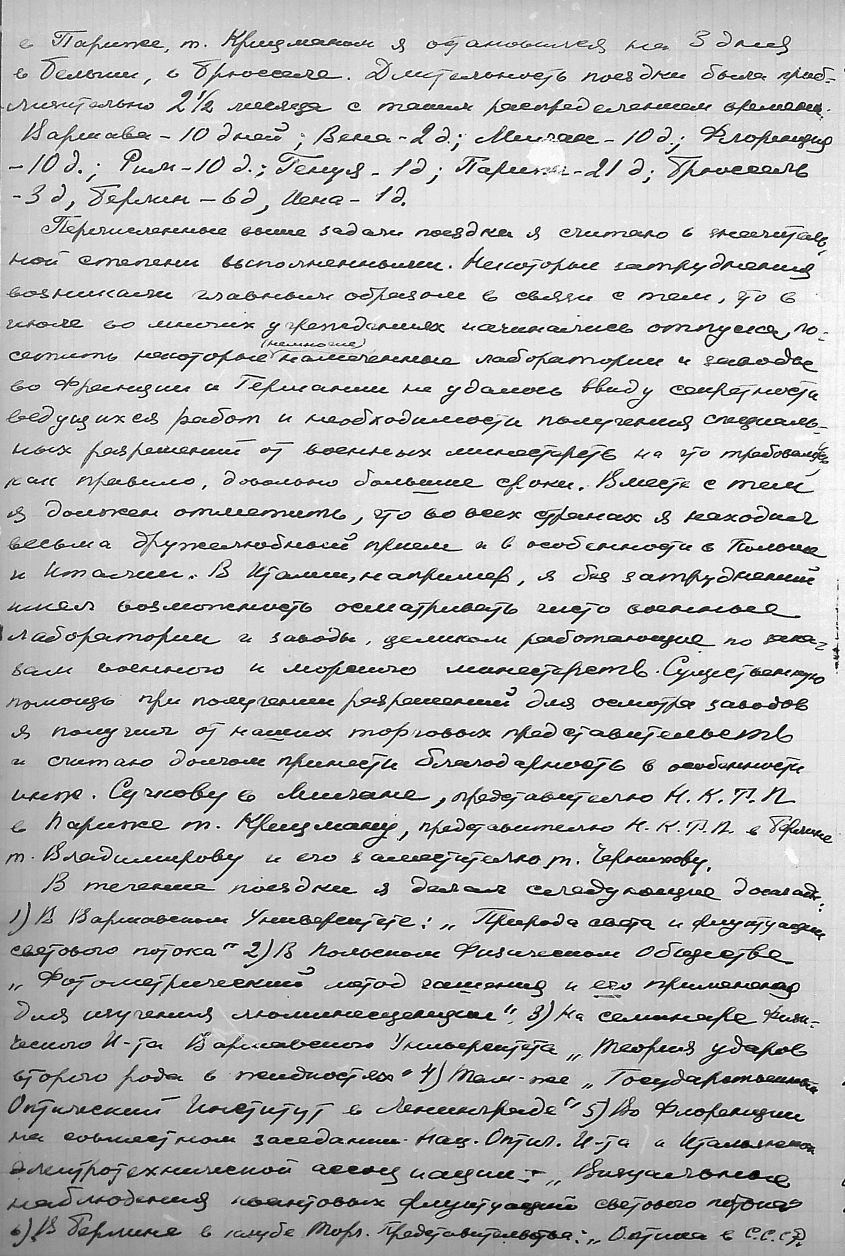 в Париже, т. Крицманом я остановился на 3 дня
в Бельгии, в Брюсселе. Длительность поездки была приб-
лизительно 2 1/2 месяца с таким распределением времени:
Варшава – 10 дней; Вена – 2 д; Милан – 10 д.; Флоренция
– 10 д.; Рим – 10 д.; Генуя – 1 д; Париж – 21 д; Брюссель
– 3 д, Берлин – 6 д, Иена – 1 д.
Перечисленные выше задачи поездки я считаю в значитель-
ной степени выполненными. Некоторые затруднения
возникали главным образом в связи с тем, что в
июле во многих учреждениях начинались отпуска, по-
сетить некоторые (немногие) намеченные лаборатории и заводы
во Франции и Германии не удалось ввиду секретности
ведущихся работ и необходимости получения специаль-
ных разрешений от военных министерств на что требовались,
как правило, довольно большие сроки. Вместе с тем
я должен отметить, что во всех странах я находил
весьма дружелюбный прием и в особенности в Польше
и Италии. В Италии, например, я без затруднений
имел возможность осматривать чисто военные
лаборатории и заводы, целиком работающие по зака-
зам военного и морского министерств. Существенную
помощь при получении разрешений для осмотра заводов
я получил от наших торговых представительств
и считаю долгом принести благодарность в особенности
инж. Сучкову в Милане, представителю Н.К.Т.П.
в Париже т. Крицману, представителю Н.К.Т.П. в Берлине
т. Владимирову и его заместителю, т. Черникову.
В течение поездки я делал следующие доклады:
1) В Варшавском Университете: „Природа света и флуктуации
светового потока" 2) В Польском Физическом Обществе
„Фотометрический метод гашения и его применения
для изучения люминесценции". 3) На семинаре Физи-
ческого И-та Варшавского Университета „Теория ударов
второго рода в жидкостях" 4) Там-же „Государственный
Оптический Институт в Ленинграде" 5) Во Флоренции
на совместном заседании Нац. Оптич. И-та и Итальянской
электротехнической ассоциации – „Визуальные
наблюдения квантовых флуктуаций светового потока"
6) В Берлине в клубе Торг. Представительства: „Оптика в С.С.С.Р.